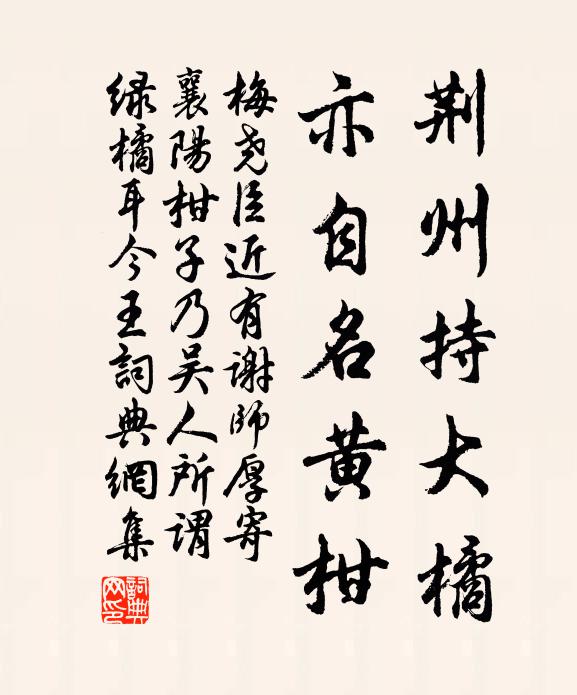 荆州持大橘
亦自名黄柑
梅尧臣近有谢師厚寄
襄陽柑子乃吴人所謂
绿橘耳今王詞典網集
詞典网印